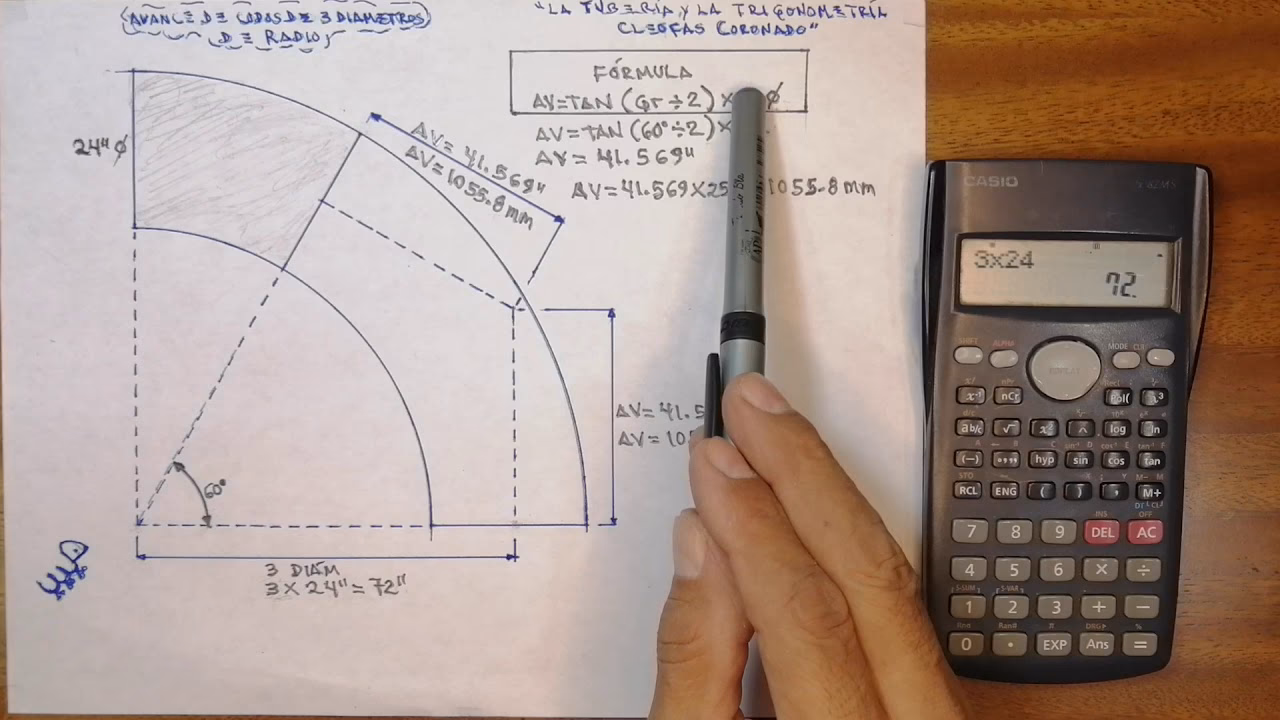 AVANCE DE CODOS DE 3 DIAMETROS
DE RADIO
"LA TUBERÍA, Y LA TRIGONOMETRÍA
CLEOFAS CORONADO"
FÓRMULA
AV=TAN (Gr÷2) × Ø
AV=TAN (60°÷2) ×
AV= 41.569"
AV=41.569×25 1055.8 mm
24" Ø
AV= 41.569"
AV= 1055.8 mm
AV= 41.5
AV= 10
60°
3 DIÁM
3 × 24" = 72"
CASIO
3×24
72.
SHIFT ALPHA MODE CLR
REPLAY
x⁻¹ nCr Pol( x³
ab/c √ x² ^ log ln
(-) °,,, hyp sin cos tan
RCL ENG ( ) , M+
7 8 9 DEL AC
4 5 6 × ÷
1 2 3 + −
0 . EXP Ans =